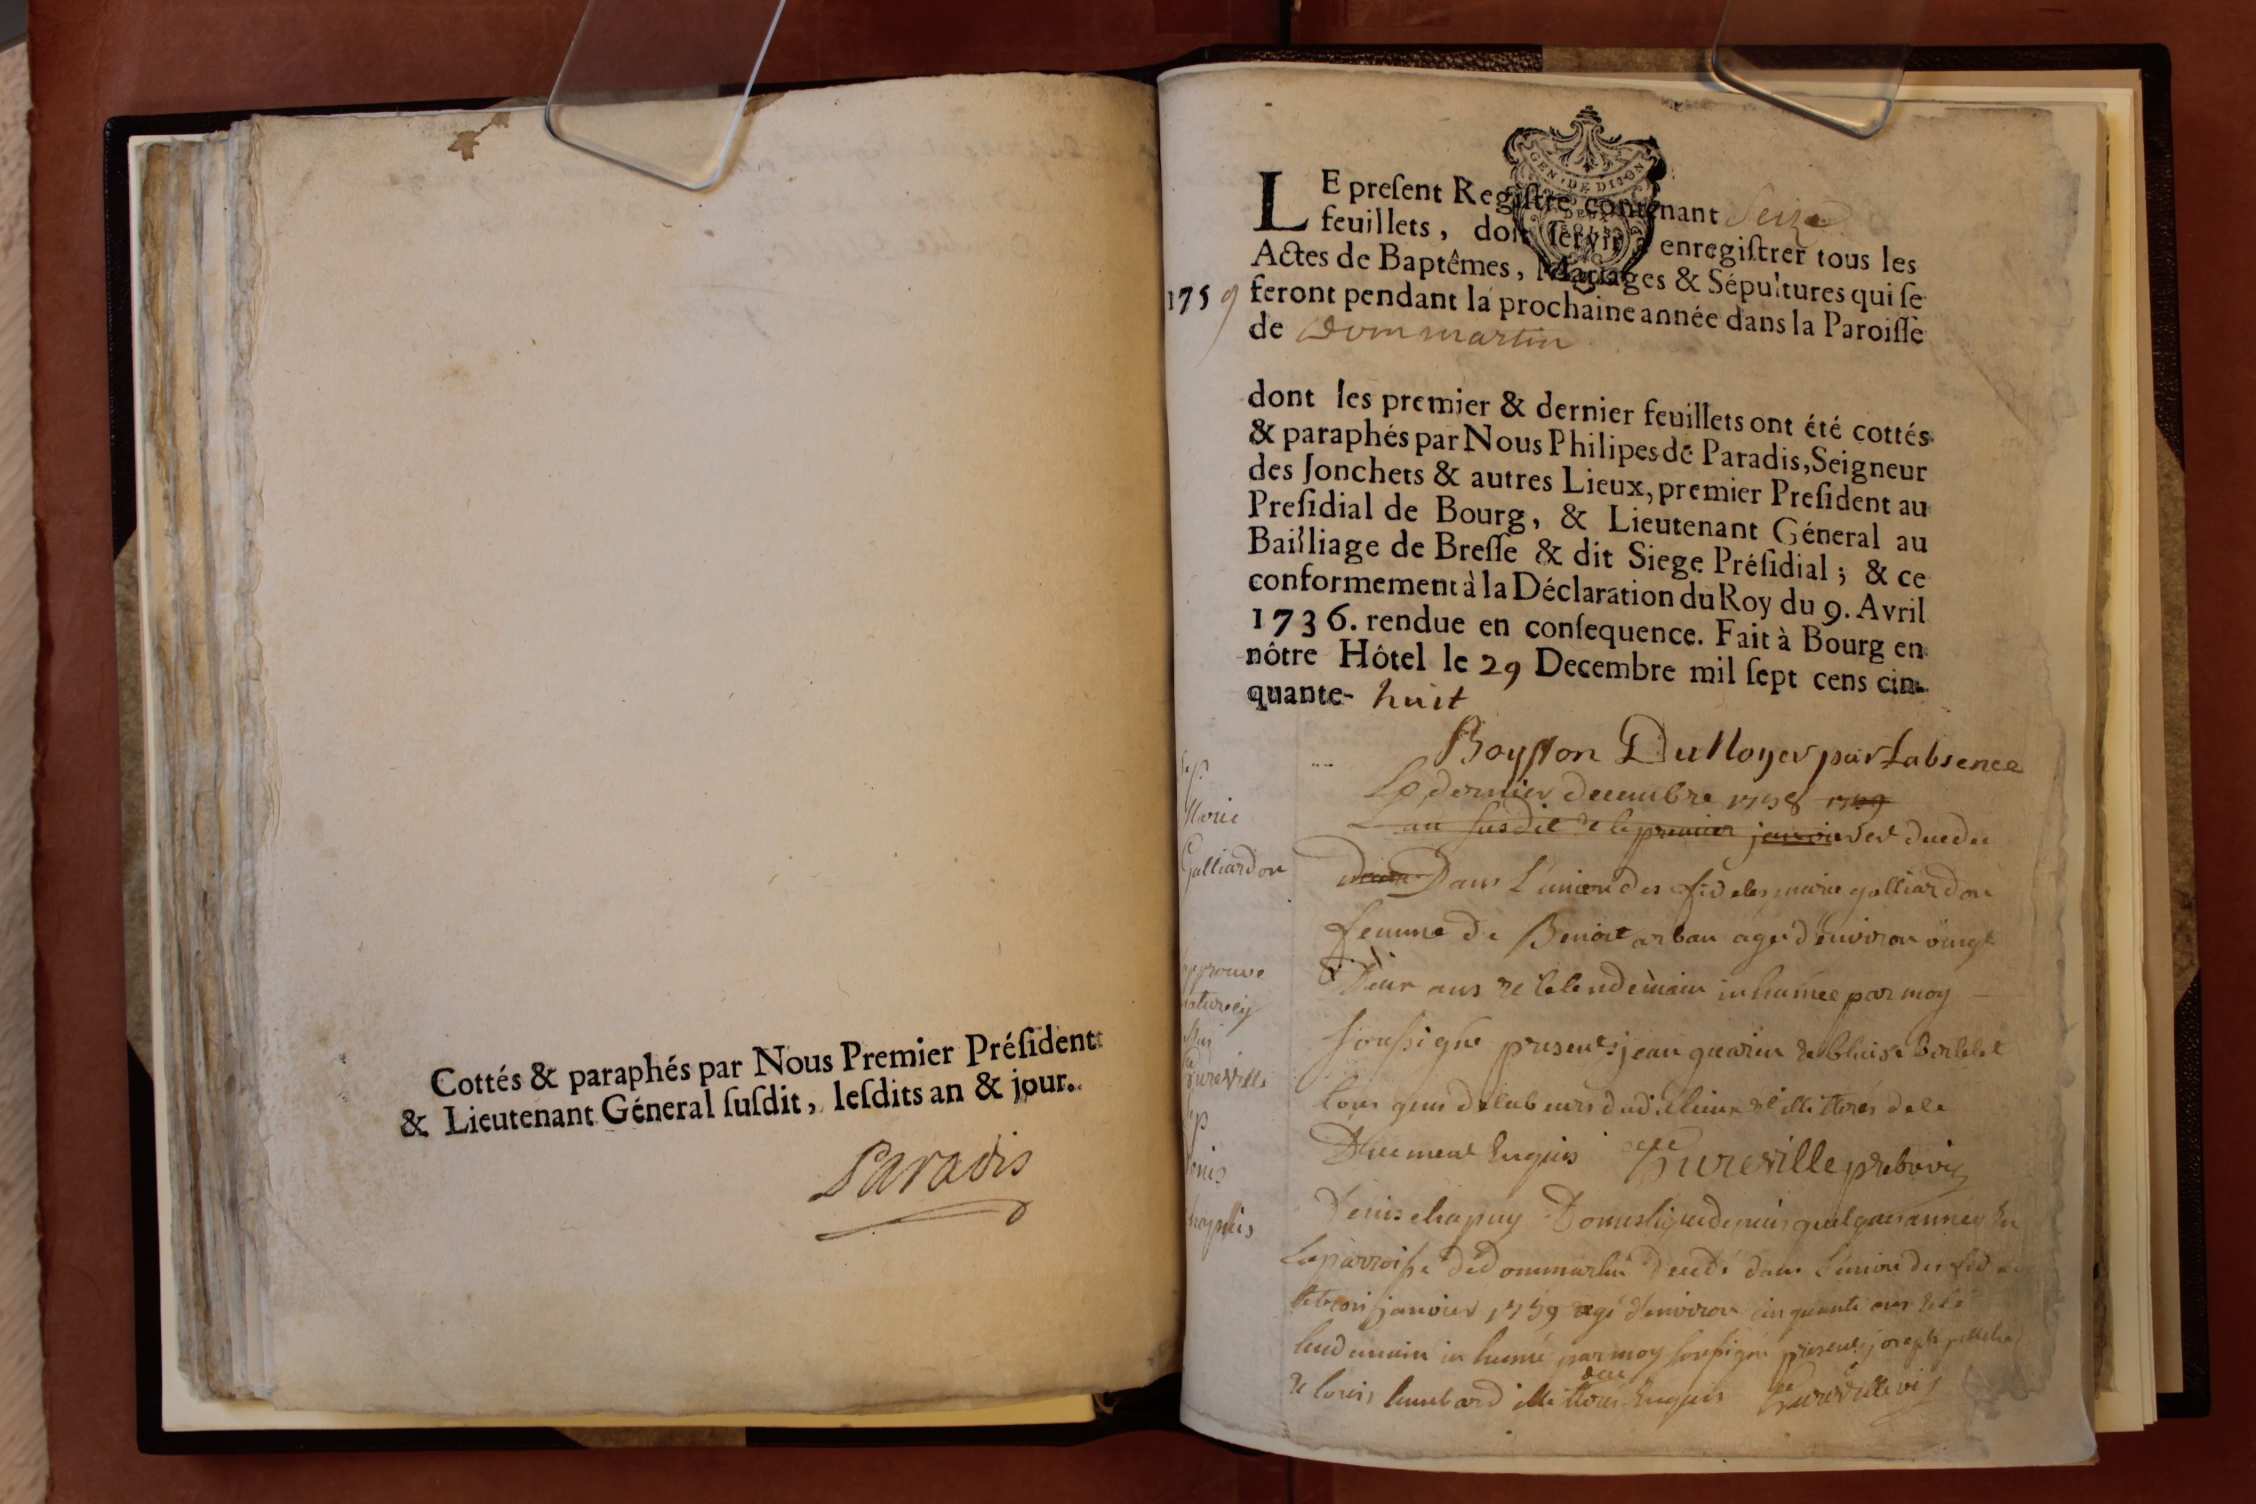 Cottés & paraphés par Nous Premier Préſident
& Lieutenant Géneral ſuſdit, leſdits an & jour.
Paradis
GEN · DE DIJON
LE preſent Regiſtre contenant Seize
feuillets, doit ſervir à enregiſtrer tous les
Actes de Baptêmes, Mariages & Sépultures qui ſe
1759 feront pendant la prochaine année dans la Paroiſſe
de Dommartin
dont les premier & dernier feuillets ont été cottés
& paraphés par Nous Philipes de Paradis, Seigneur
des Jonchets & autres Lieux, premier Preſident au
Preſidial de Bourg, & Lieutenant Géneral au
Bailliage de Breſſe & dit Siege Préſidial ; & ce
conformement à la Déclaration du Roy du 9. Avril
1736. rendue en conſequence. Fait à Bourg en
nôtre Hôtel le 29 Decembre mil ſept cens cin-
quante- huit
par Labsence
Marie
Galliardon
Le dernier decembre 1758 1759
au susdit le premier janvier est
Dans L'union des fideles marie galliardon
femme de Benoit arban age d'environ vingt
ans et le lendemain inhumée par moy
soussigné presents jean
dudit lieux illitterés de ce
Dûement Enquis Cureville
Denis chapuy Domestique depuis quelques années En
La parroisse de dommartin decedé dans L'union des
janvier 1759 agé d'environ cinquante ans et le
lendemain inhumé par moy soussigné presents joseph
et louis humbard illitterés Enquis Cureville